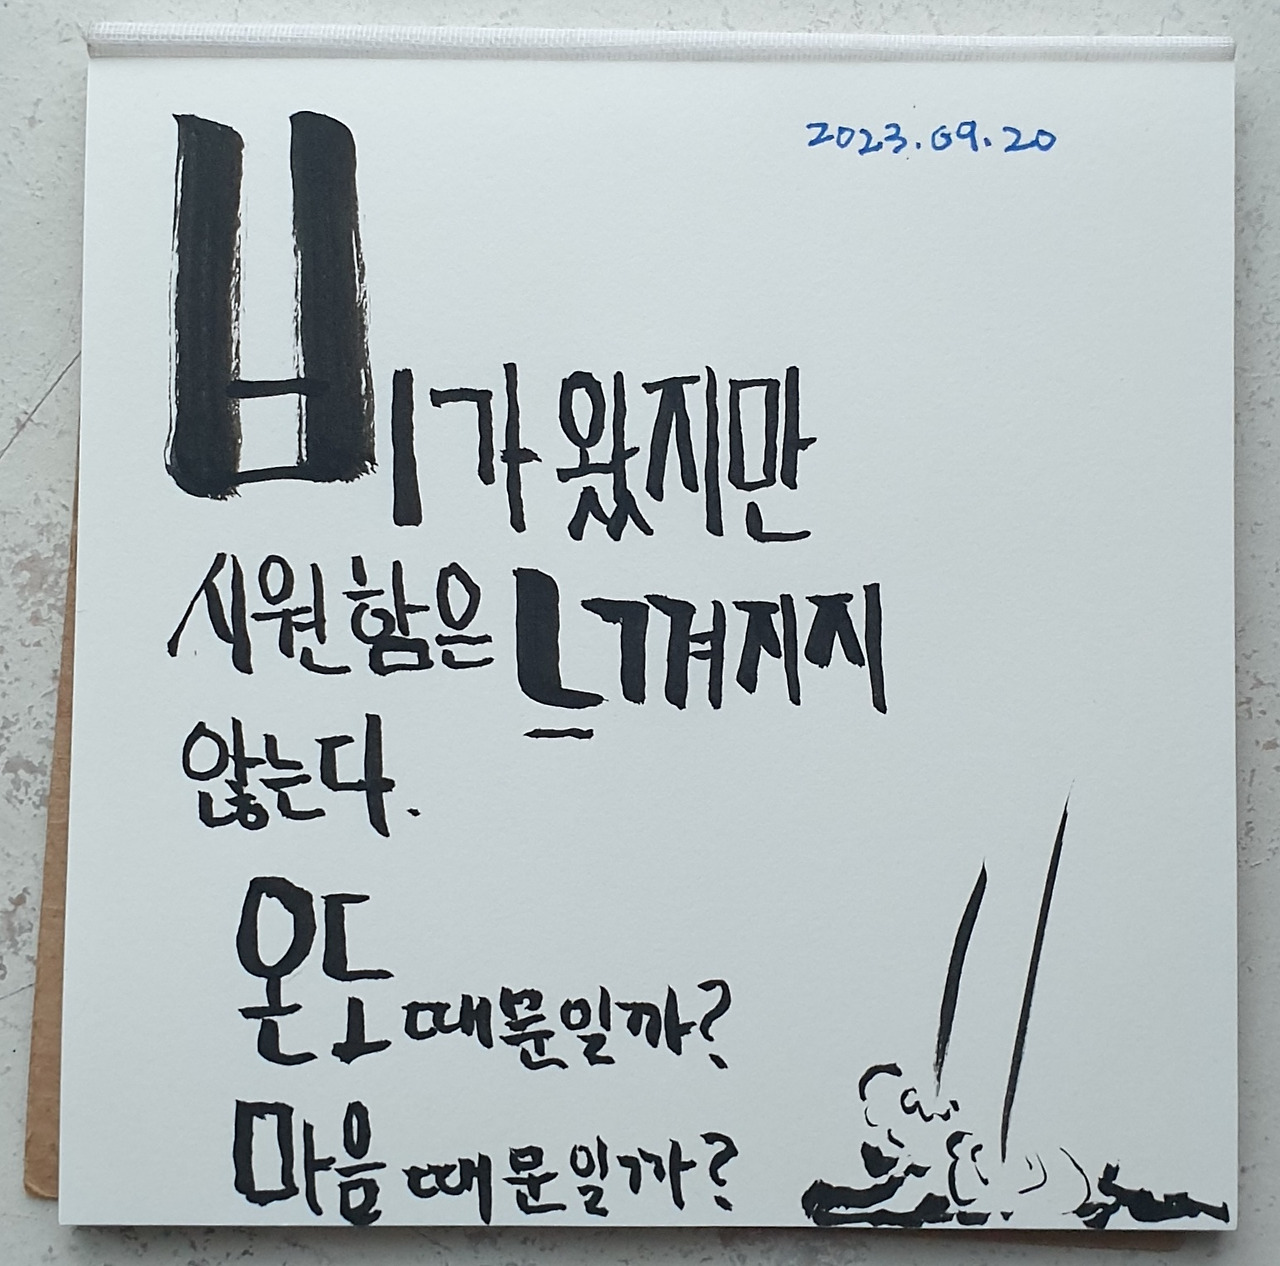 2023.09.20
비가 왔지만
시원함은 느껴지지
않는다.
온도 때문일까?
마음 때문일까?